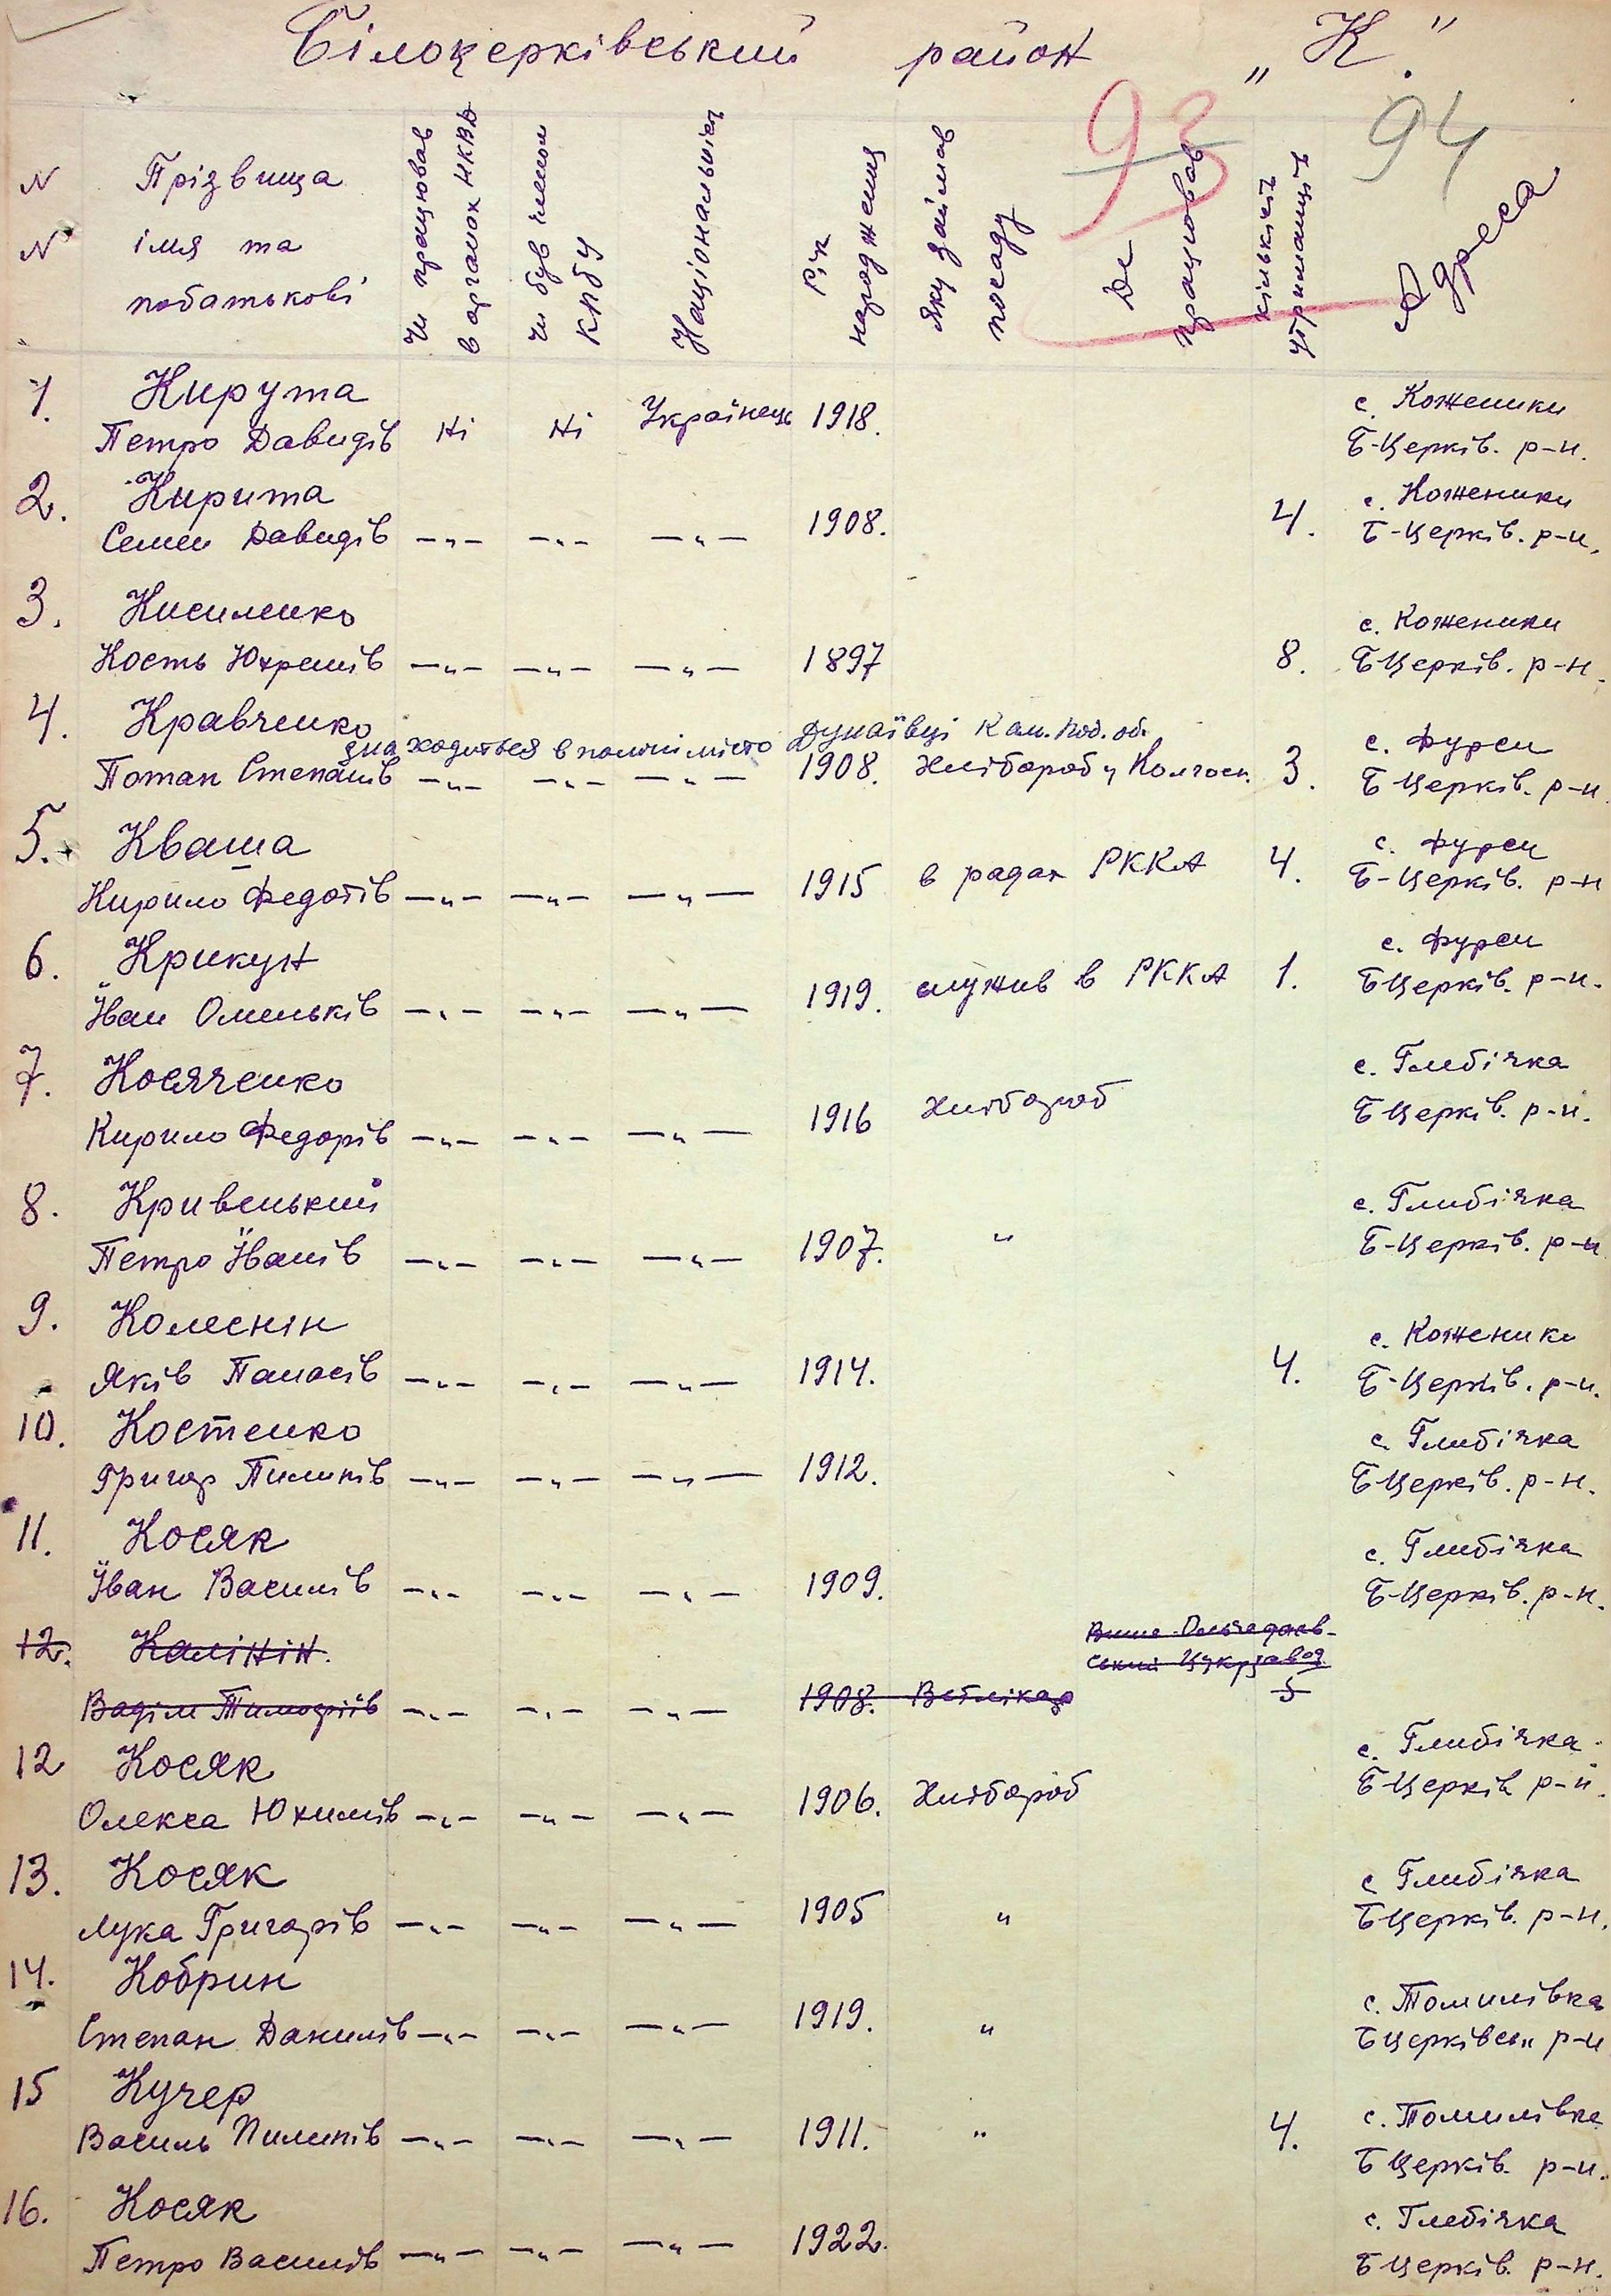 Білоцерківський район „К."
93 94
N N Прізвища імя та побатькові
Чи працював в органах НКВД
Чи був членом КПбУ
Національність
Рік народження
Яку займав посаду
Де працював
кількість утриманців
Адреса
1. Кирута с. Коженики
Петро Давидів Ні Ні Українець 1918. Б-Церків. р-н.
2. Кирита с. Коженики
Семен Давидів —"— —"— —"— 1908. 4. Б-Церків. р-н.
3. Кисиленко с. Коженики
Кость Юхремів —"— —"— —"— 1897 8. Б Церків. р-н.
4. Кравченко с. Фурси
знаходиться в полоні місто Дунаївці Кам. Под. об.
Потап Степанів —"— —"— —"— 1908. Хлібороб у Колгосп. 3. Б Церків. р-н
5. Кваша с. Фурси
Кирило Федотів —"— —"— —"— 1915 в радах РККА 4. Б-Церків. р-н
6. Крикун с. Фурси
Іван Оменьків —"— —"— —"— 1919. служив в РККА 1. Б Церків. р-н.
7. Косяченко с. Глибічка
Кирило Федорів —"— —"— —"— 1916 Хлібороб Б Церків. р-н.
8. Кривенький с. Глибічка
Петро Іванів —"— —"— —"— 1907. " Б-Церків. р-н
9. Колеснік с. Коженики
Яків Панасів —"— —"— —"— 1914. 4. Б-Церків. р-н.
10. Костенко с. Глибічка
Григор Пилипів —"— —"— —"— 1912. Б Церків. р-н.
11. Косяк с. Глибічка
Іван Василів —"— —"— —"— 1909. Б-Церків. р-н.
12. Калінін. Цукрзавод
Вадім Тимофіїв —"— —"— —"— 1908. 5
12 Косяк с. Глибічка
Олекса Юхимів —"— —"— —"— 1906. Хлібороб Б Церків р-н.
13. Косяк с Глибічка
Лука Григорів —"— —"— —"— 1905 " Б Церків. р-н.
14. Кобрин с. Томилівка
Степан Данилів —"— —"— —"— 1919. " Б Церківськ р-н
15 Кучер с. Томилівка
Василь Пилипів —"— —"— —"— 1911. " 4. Б Церків. р-н.
16. Косяк с. Глебічка
Петро Василів —"— —"— —"— 1922. Б Церків. р-н.